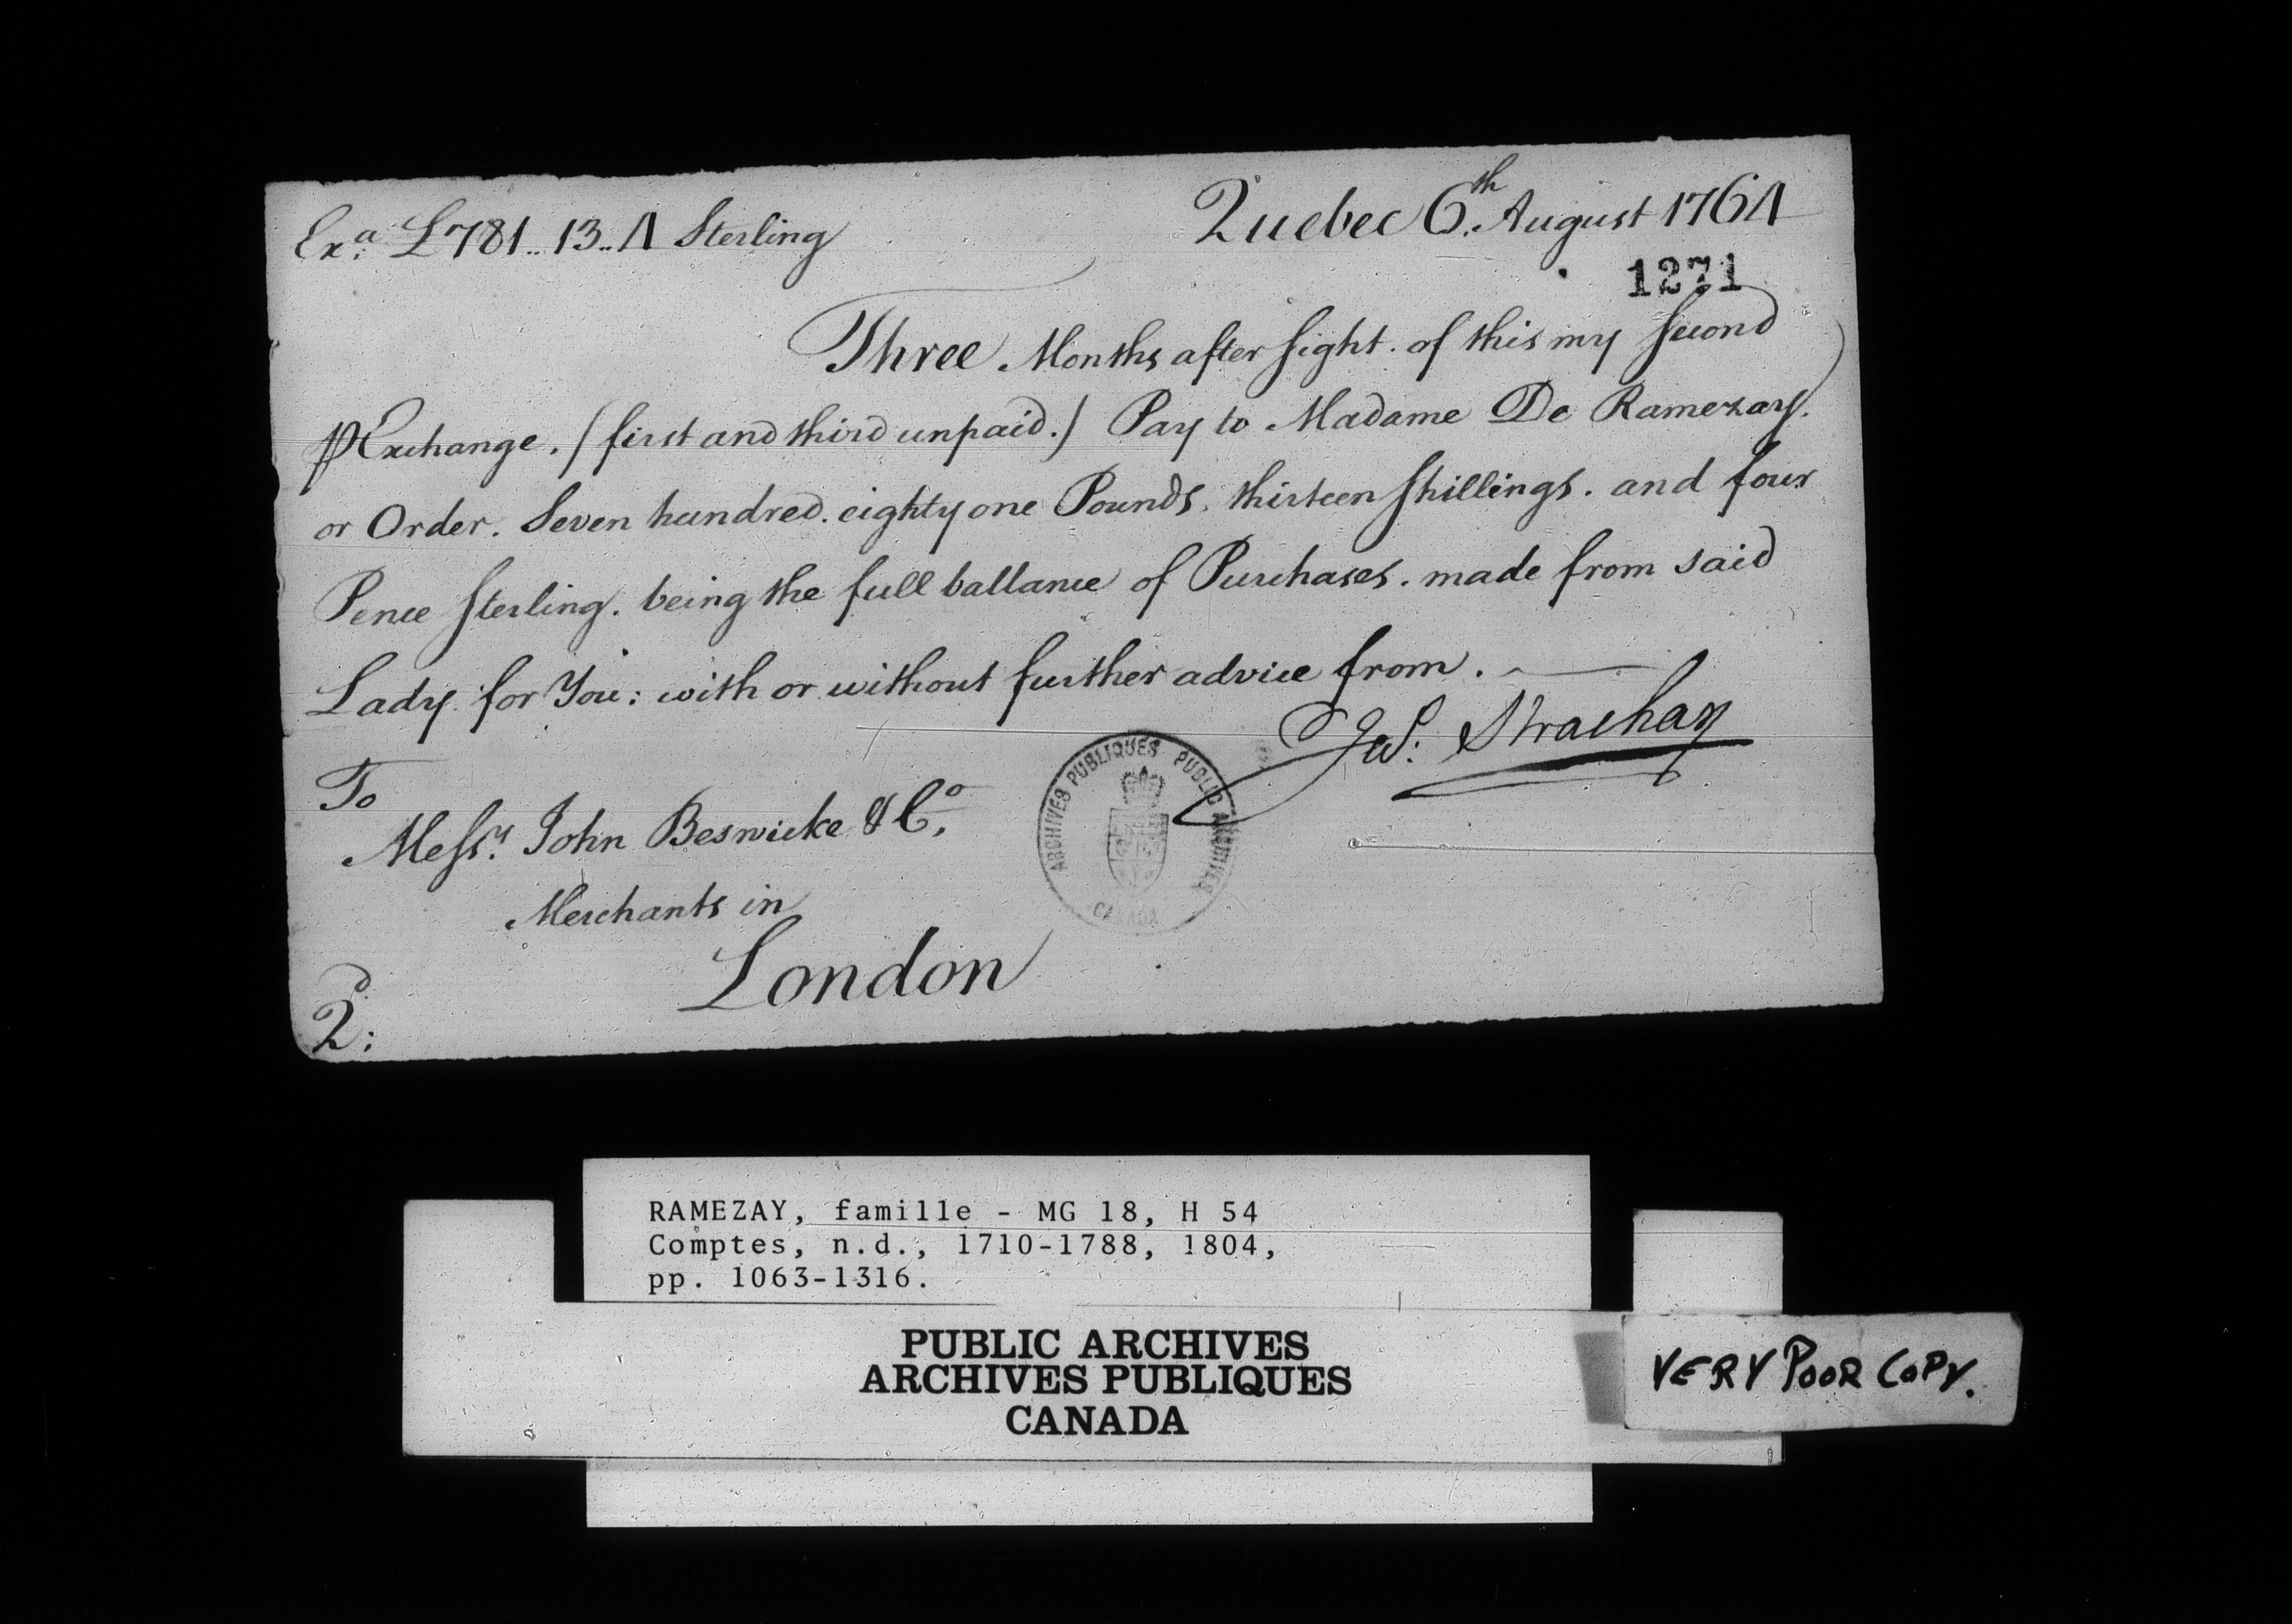 Exa. £781..13..4 Sterling
Quebec 6th. August 1764
1271
Three Months after sight. of this my second
⅌ Exchange. (first and third unpaid.) Pay to Madame De Ramezay.
or Order. Seven hundred. eighty one Pounds. thirteen shillings. and four
Pence sterling. being the full ballance of Purchases. made from said
Lady for You: with or without further advice from.
Jas. Strachan
To
Messrs. John Beswicke & Co.
Merchants in
London
2d:
ARCHIVES PUBLIQUES PUBLIC ARCHIVES
CANADA
RAMEZAY, famille - MG 18, H 54
Comptes, n.d., 1710-1788, 1804,
pp. 1063-1316.
PUBLIC ARCHIVES
ARCHIVES PUBLIQUES
CANADA
VERY POOR COPY.